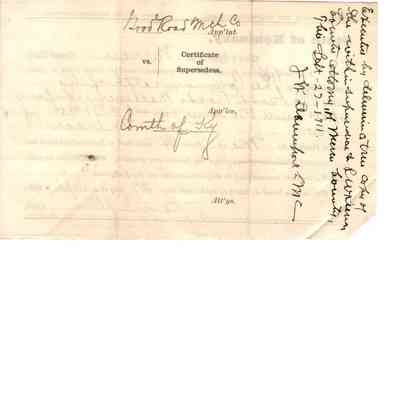 Good Road Mch Co
App'lat.
vs. Certificate
of
Supersedeas.
App'lee,
Comth of Ky
Att'ys.
Executed by delivering a true copy of
the within supersedeas to
County Attorney of Mercer County,
This Sept-27-1911.